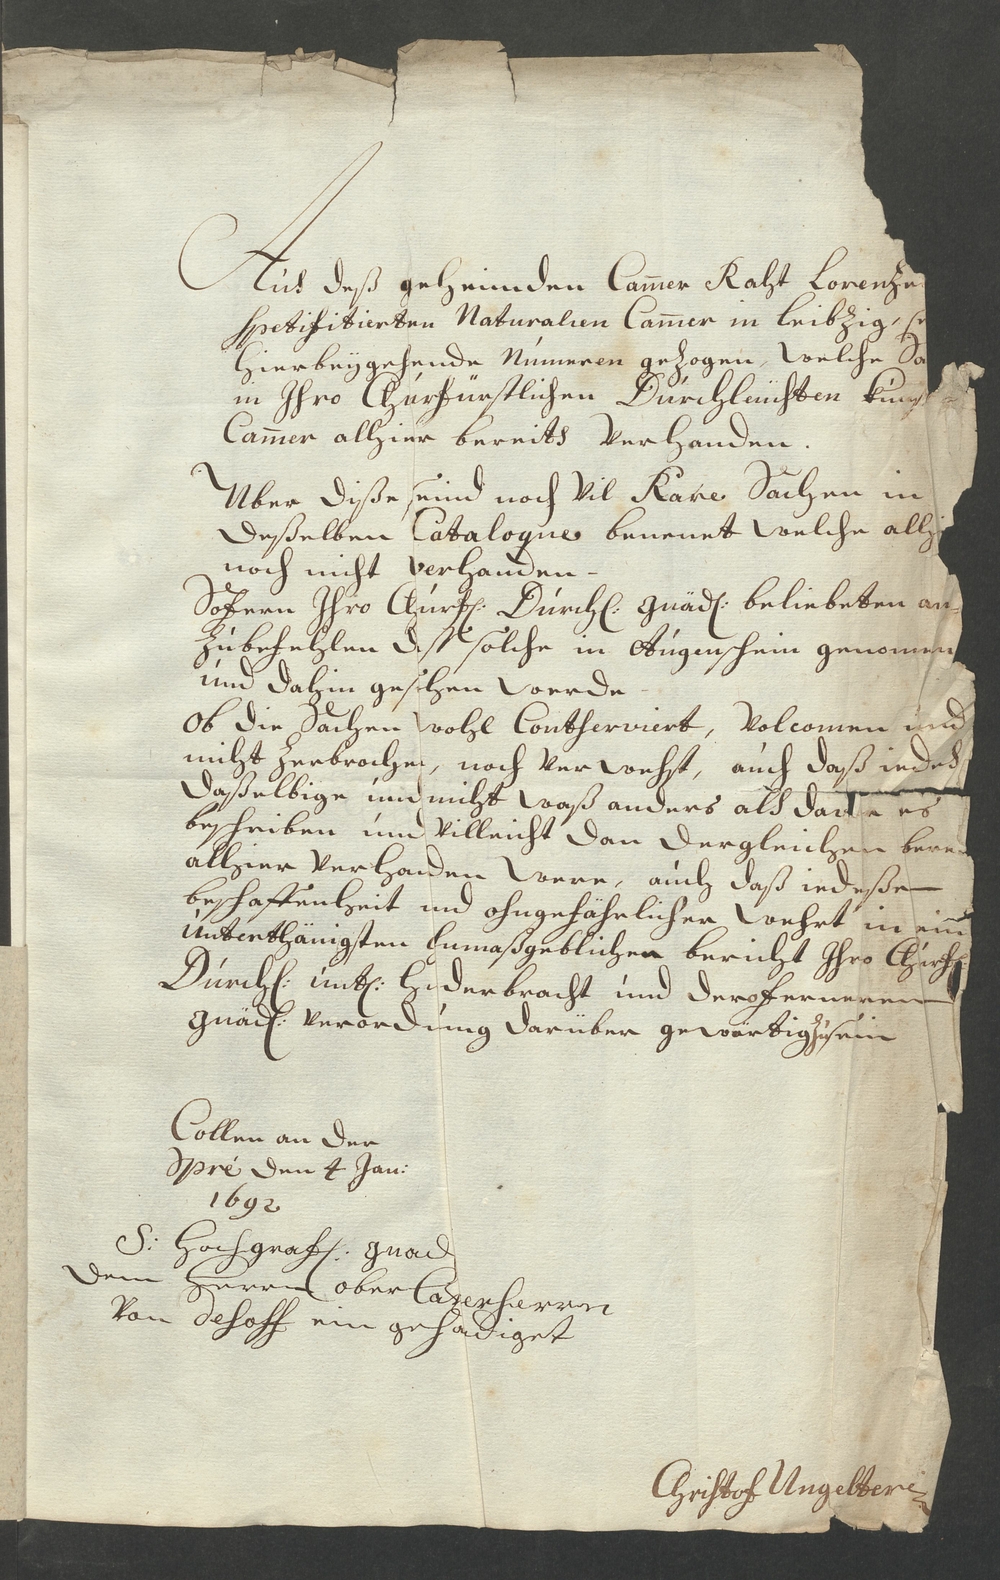 Auß deß geheimden Cam̄er Raht Lorentze
spetifitierten Naturalien Cam̄er in leibzig,
hierbeÿgehende Númeren gezogen, welche Sa
in Ihro Chúrfürstlichen Dúrchleúchten kúnst
Cam̄er alhier bereits verhanden.
Uber diße seind noch vil Rare Sachen in
deßelben Catalogue benenet welche allhi
noch nicht verhanden-
Sofern Ihro Chúrfl: Dúrchl: gnädl: beliebeten an-
zúbefehlen daß solche in Aúgenschein genomen
und dahin gesehen werde-
Ob die Sachen wohl Contserviert, volcomen und
nicht zerbrochen, noch verwehst, aúch daß iedes
daßelbige únd nicht waß anders als darfür es
beschriben únd villeicht dan dergleichen berei
alhier verhanden were, aúch daß iedeßen
beschaffenheit und ohngefährlicher wehrt in ein
únterthänigsten únmaßgeblichen bericht Ihro Chúrfl:
Dúrchl: úntl: hiderbracht únd dero ferneren
gnädl: verordnúng darüber gewärtig zú sein
Collen an der
Spré den 4 Jan:
1692
S: Hochgräfl: gnad
dem Herrn ober Cam̄erherrn
von dehoff ein gehändiget
Christof Ungelter